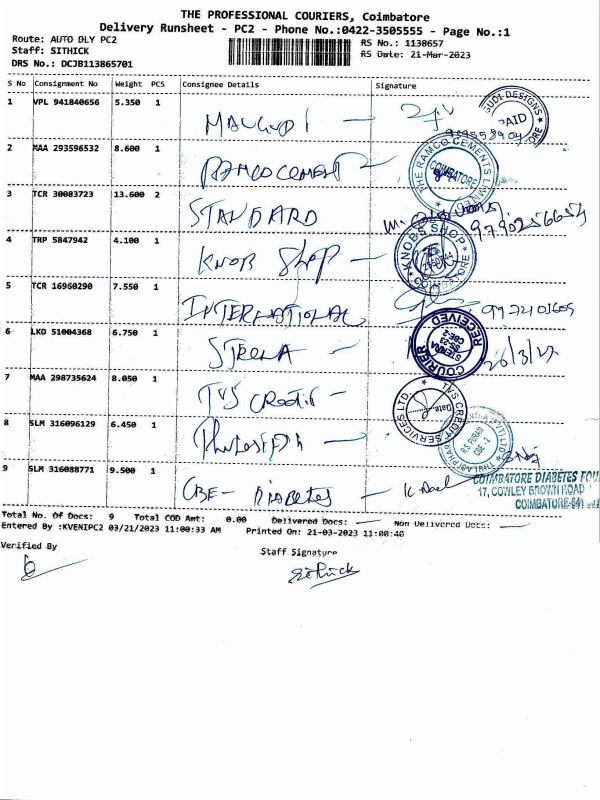 THE PROFESSIONAL COURIERS, Coimbatore
Delivery Runsheet - PC2 - Phone No.:0422-3505555 - Page No.:1
Route: AUTO DLY PC2
RS No.: 1138657
Staff: SITHICK
RS Date: 21-Mar-2023
DRS No.: DCJB113865701
S No Consignment No Weight PCS Consignee Details Signature
1 VPL 941840656 5.350 1
2 MAA 293596532 8.600 1 RAMCO CEMENT
THE RAMCO CEMENTS LIMITED
COIMBATORE
3 TCR 30083723 13.600 2 STANDARD
9790256654
4 TRP 5847942 4.100 1 KNOB SHOP
KNOBS SHOP
COIMBATORE
5 TCR 16960290 7.550 1 INTERNATIONAL
6 LKO 51004368 6.750 1
COURIER RECEIVED
CBE-2
7 MAA 298735624 8.050 1 TVS CREDIT
TVS CREDIT SERVICES LTD.
Date
8 SLM 316096129 6.450 1
9 SLM 316088771 9.500 1 CBE- DIABETES
COIMBATORE DIABETES FOU
17, COWLEY BROWN ROAD
COIMBATORE-641
Total No. Of Docs: 9 Total COD Amt: 0.00 Delivered Docs: Non Delivered Docs:
Entered By :KVENIPC2 03/21/2023 11:00:33 AM Printed On: 21-03-2023 11:00:40
Verified By
Staff Signature
Sithick